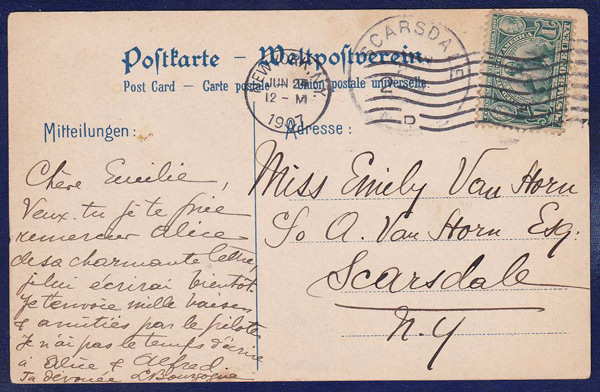 Postkarte – Weltpostverein.
Post Card – Carte postale – Union postale universelle.
NEW YORK, N.Y.
JUN 24
12 – M
1907
SCARSDALE
N.Y.
D
ONE CENT
Mitteilungen:
Adresse:
Chère Emilie,
Veux-tu je te prie
remercier Alice
de sa charmante lettre,
je lui écrirai bientôt.
Je t'envoie mille baisers
& amitiés par le pilote.
Je n'ai pas le temps d'écrire
à Alice & Alfred
Ta dévouée L. Bourgogne
Miss Emily Van Horn
C/o A. Van Horn Esq:
Scarsdale
N.Y